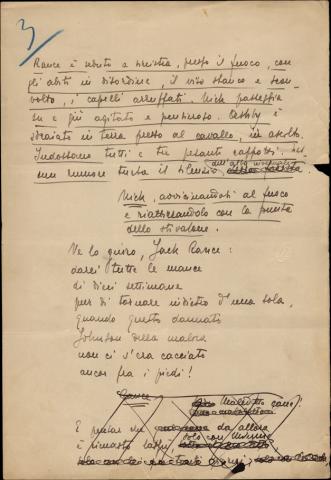 3
Rance è seduto a sinistra, presso il fuoco, con
gli abiti in disordine, il viso stanco e scon-
volto, i capelli arruffati. Nick passeggia
su e giù agitato e pensoso. Ashby è
sdraiato in terra presso al cavallo, in ascolto.
Indossano tutti e tre pesanti cappotti. Nes-
sun rumore turba il silenzio dell'alba invernale
Nick, avvicinandosi al fuoco
e riattizzandolo con la punta
dello stivalone.
Ve lo giuro, Jack Rance:
darei tutte le mance
di dieci settimane
per di tornare indietro d'una sola,
quando questo dannato
Johnson della malora
non ci s'era cacciato
ancor fra i piedi!
Rance
Maledetto cane!
E pensar che da allora
è rimasto lassù
solo con Minnie